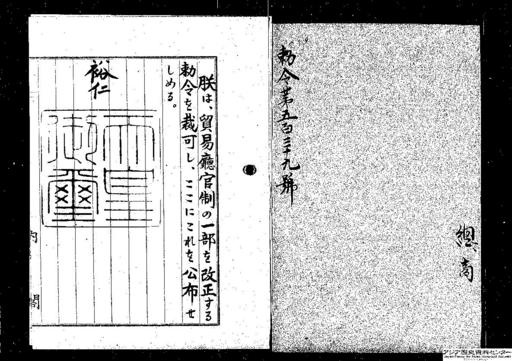 勅令第五百三十九號
總
商
朕は、貿易廳官制の一部を改正する
勅令を裁可し、ここにこれを公布せ
しめる。
裕仁
天皇
御璽
内
閣
アジア歴史資料センター